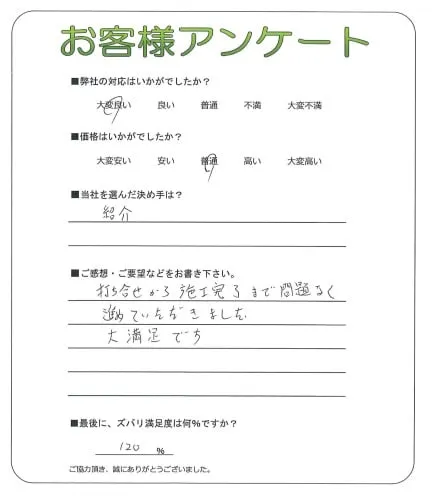 お客様アンケート
■弊社の対応はいかがでしたか？
大変良い 良い 普通 不満 大変不満
■価格はいかがでしたか？
大変安い 安い 普通 高い 大変高い
■当社を選んだ決め手は？
紹介
■ご感想・ご要望などをお書き下さい。
打ち合せから施工完了まで問題なく
進めていただきました
大満足です
■最後に、ズバリ満足度は何%ですか？
120 %
ご協力頂き、誠にありがとうございました。